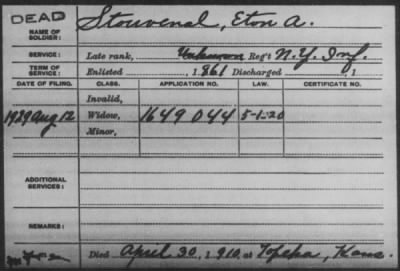 DEAD
NAME OF SOLDIER: Stouvenal, Eton A.
SERVICE: Late rank, Unknown Reg't N.Y. Inf.
TERM OF SERVICE: Enlisted 1861 Discharged , 1
DATE OF FILING. CLASS. APPLICATION NO. LAW. CERTIFICATE NO.
Invalid,
1929 Aug 12 Widow, 1649 044 5-1-20
Minor,
ADDITIONAL SERVICES:
REMARKS:
Died April 30, 1910, at Topeka, Kans.